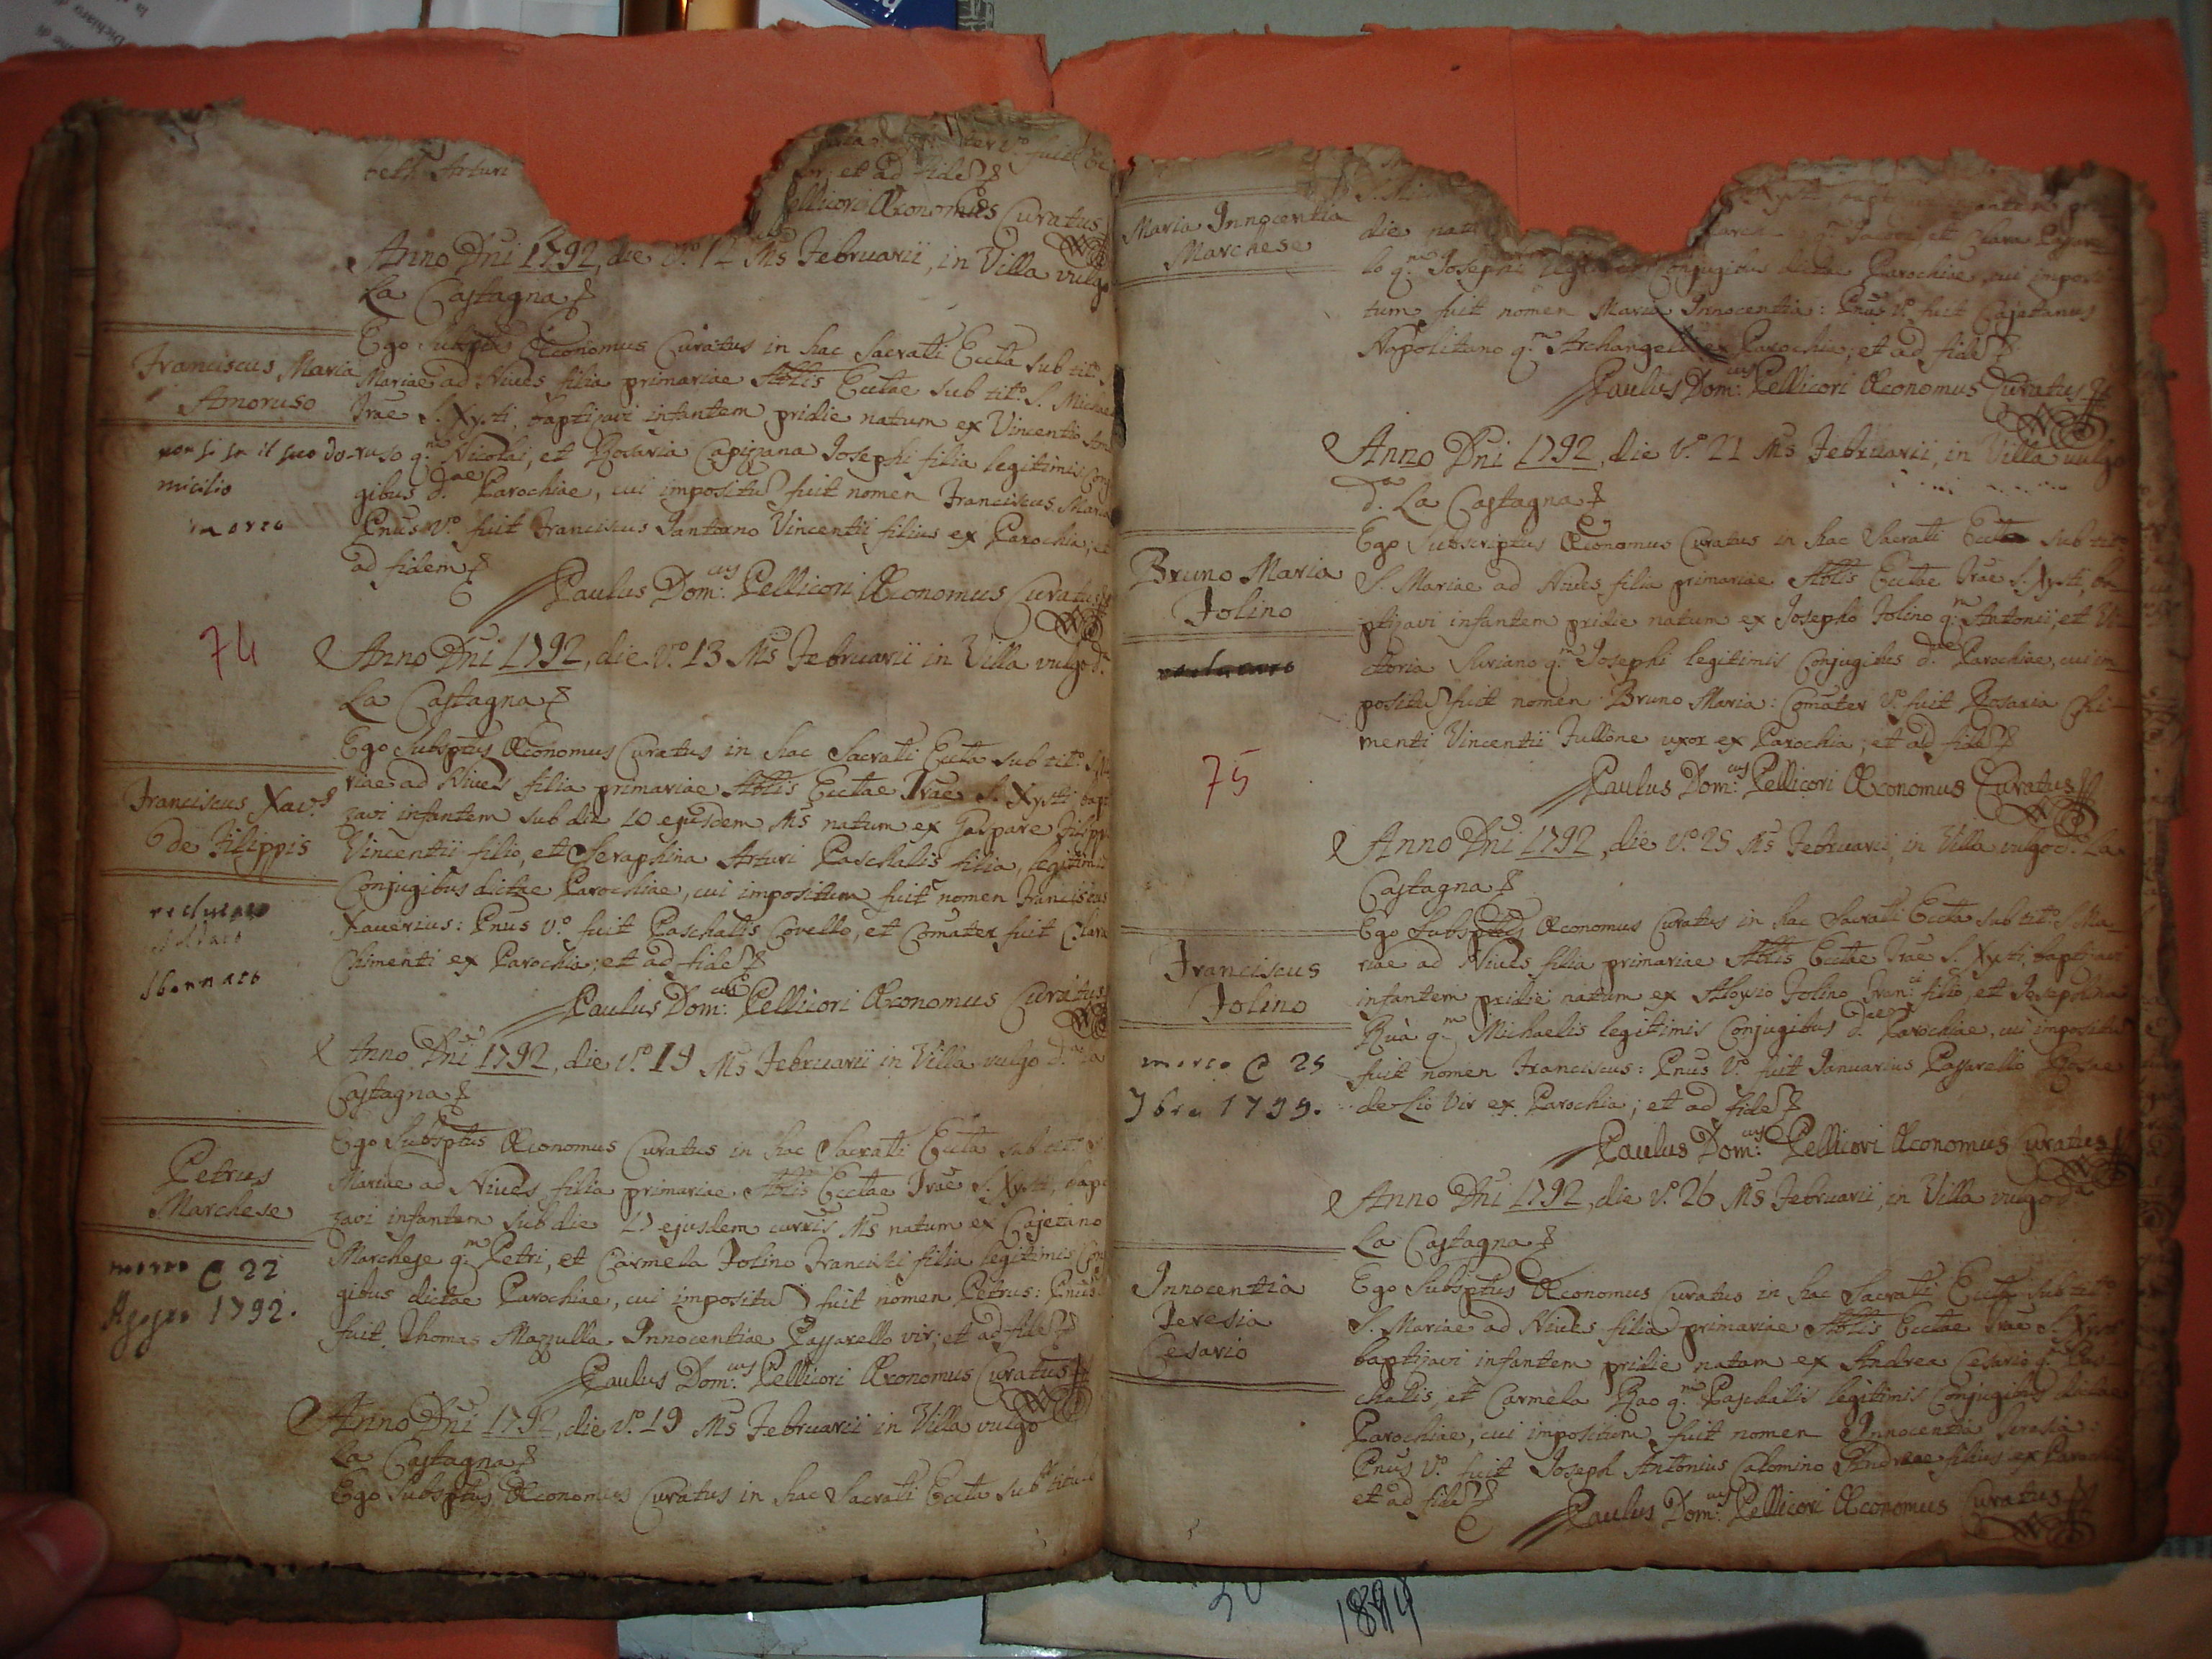 beth Arturi
et ad fide
Pellicori Œconomus Curatus
Anno Dni 1792, die v.º 12 Ms Februarii, in Villa vulgo
La Castagna
Franciscus Maria
Amoruso
non si sa il suo do-
micilio
morto
Ego Subsptus Œconomus Curatus in hac Sacrati Eccta sub tit.º S.
Mariae ad Nives filia primariae Abtis Ecctae sub tit.º S. Michae
Trae S. Xysti, baptizavi infantem pridie natum ex Vincentio Amo
ruso q.m Nicolai, et Rosaria Capizzana Josephi filia legitimis Conj
gibus d.ae Parochiae, cui impositu fuit nomen Franciscus Maria
Pnus v.º fuit Franciscus Santorno Vincentii filius ex Parochia; et
ad fidem
Paulus Dom.cus Pellicori Œconomus Curatus
74
Anno Dni 1792, die v.º 13 Ms Februarii in Villa vulgo d.a
La Castagna
Franciscus Xav.s
de Filippis
soldato
Ego Subsptus Œconomus Curatus in hac Sacrati Eccta sub tit.º S. Ma
riae ad Nives filia primariae Abtis Ecctae Trae S. Xysti bapt
zavi infantem sub die 10 ejusdem Ms natum ex Gaspare Filipp
Vincentii filio, et Seraphina Arturi Paschalis filia, legitimis
Conjugibus dictae Parochiae, cui impositum fuit nomen Franciscus
Xaverius: Pnus v.º fuit Paschalis Covello, et Comater fuit Clara
Chimenti ex Parochia; et ad fide
Paulus Dom.cus Pellicori Œconomus Curatus
Anno Dni 1792, die v.º 19 Ms Februarii in Villa vulgo d.a La
Castagna
Petrus
Marchese
morto a 22
Agosto 1792.
Ego Subsptus Œconomus Curatus in hac Sacrati Eccta sub tit.º S
Mariae ad Nives filia primariae Abtis Ecctae Trae S. Xysti, bapt
zavi infantem sub die 17 ejusdem curris Ms natum ex Cajetano
Marchese q.m Petri, et Carmela Folino Francisci filia legitimis Conj
gibus dictae Parochiae, cui impositu fuit nomen Petrus: Pnus
fuit Thomas Mazzulla Innocentiae Passarello vir; et ad fide
Paulus Dom.cus Pellicori Œconomus Curatus
Anno Dni 1792, die v.º 19 Ms Februarii in Villa vulgo
La Castagna
Ego Subsptus Œconomus Curatus in hac Sacrati Eccta sub titu
Maria Innocentia
Marchese
die nat Jacobi, et Clara Passarel
lo q.m Josephi legitimis Conjugibus dictae Parochiae, cui imposi
tum fuit nomen Maria Innocentia: Pnus v.º fuit Cajetanus
Napolitano q.m Archangeli ex Parochia; et ad fide
Paulus Dom.cus Pellicori Œconomus Curatus
Anno Dni 1792, die v.º 21 Ms Februarii, in Villa vulgo
d.a La Castagna
Bruno Maria
Folino
75
Ego Subscriptus Œconomus Curatus in hac Sacrati Eccta sub tit.º
S. Mariae ad Nives filia primariae Abtis Ecctae Trae S. Xysti, ba-
ptizavi infantem pridie natum ex Josepho Folino q.m Antonii, et Vi-
ctoria Suriano q.m Josephi legitimis Conjugibus d.ae Parochiae, cui im-
positu fuit nomen Bruno Maria: Comater v.º fuit Rosaria Chi-
menti Vincentii Fullone uxor ex Parochia; et ad fide
Paulus Dom.cus Pellicori Œconomus Curatus
Anno Dni 1792, die v.º 25 Ms Februarii, in Villa vulgo d.a La
Castagna
Franciscus
Folino
morto a 25
7bre 1799.
Ego Subsptus Œconomus Curatus in hac Sacrati Eccta sub tit.º S. Ma-
riae ad Nives filia primariae Abtis Ecctae Trae S. Xysti, baptizavi
infantem pridie natum ex Aloysio Folino Fran.ci filio, et Josephina
Ruà q.m Michaelis legitimis Conjugibus d.ae Parochiae, cui impositu
fuit nomen Franciscus: Pnus v.º fuit Januarius Passarello Rosae
de Lio vir ex Parochia; et ad fide
Paulus Dom.cus Pellicori Œconomus Curatus
Anno Dni 1792, die v.º 26 Ms Februarii, in Villa vulgo d.a
La Castagna
Innocentia
Teresia
Cesario
Ego Subsptus Œconomus Curatus in hac Sacrati Eccta sub tit.º
S. Mariae ad Nives filia primariae Abtis Ecctae Trae S. Xysti
baptizavi infantem pridie natam ex Andrea Cesario q.m Pas-
chalis, et Carmela Rao q.m Paschalis legitimis Conjugibus dictae
Parochiae, cui impositum fuit nomen Innocentia Teresia:
Pnus v.º fuit Joseph Antonius Colomino Andreae filius ex Paroc
et ad fide
Paulus Dom.cus Pellicori Œconomus Curatus